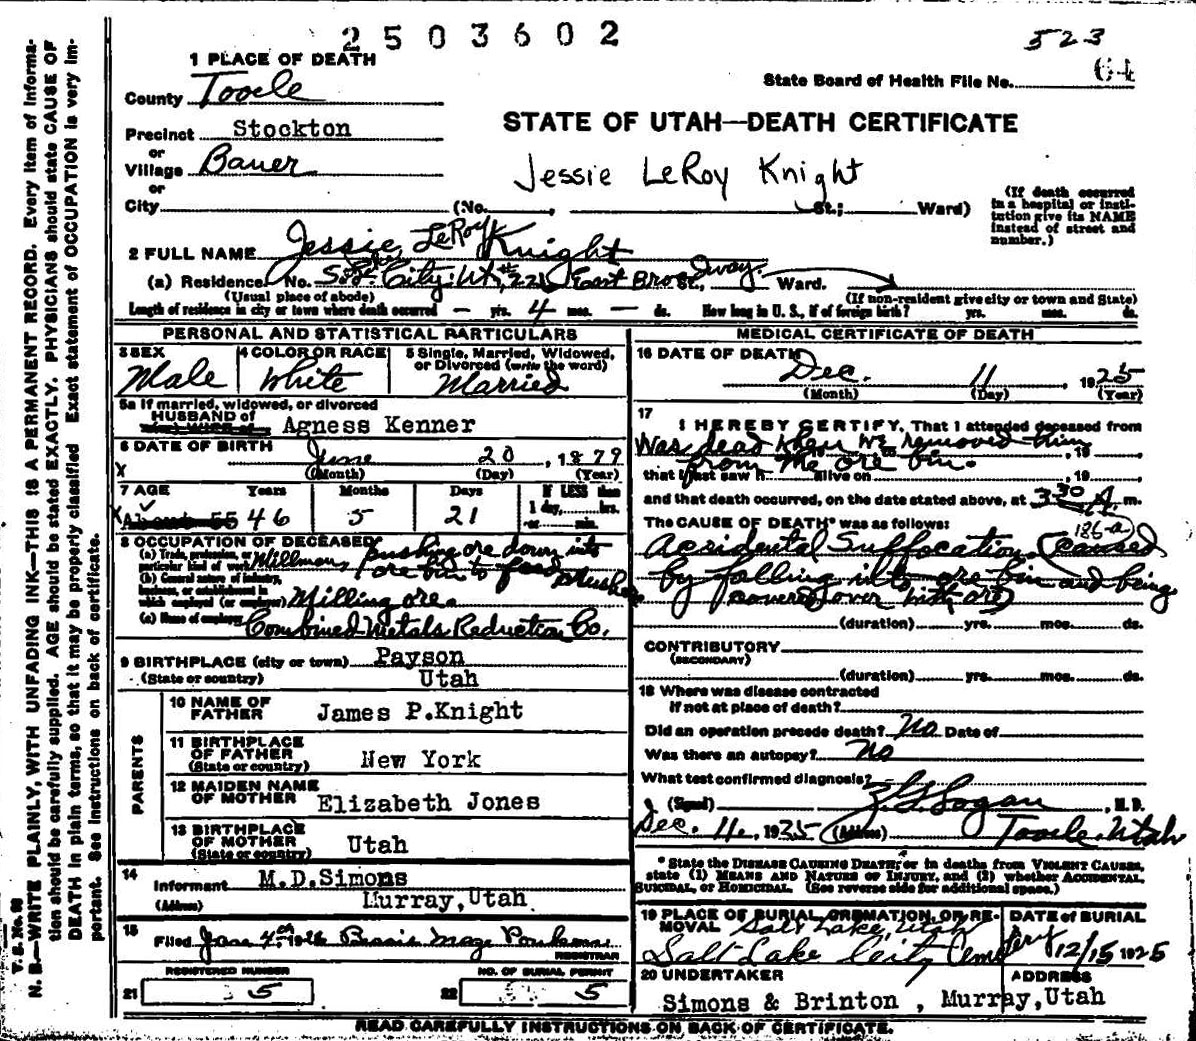 2503602
523
64
1 PLACE OF DEATH
State Board of Health File No.
County Tooele
STATE OF UTAH—DEATH CERTIFICATE
Precinct Stockton
or
Village Bauer
Jessie LeRoy Knight
or
City (No. , St.; Ward)
(If death occurred in a hospital or institution give its NAME instead of street and number.)
2 FULL NAME Jessie LeRoy Knight
(a) Residence. No. City. Ut, #221 East Broadway. St., Ward.
(Usual place of abode) (If non-resident give city or town and State)
Length of residence in city or town where death occurred — yrs. 4 mos. — ds. How long in U. S., if of foreign birth? yrs. mos. ds.
PERSONAL AND STATISTICAL PARTICULARS
3 SEX Male
4 COLOR OR RACE White
5 Single, Married, Widowed, or Divorced (write the word) Married
5a If married, widowed, or divorced
HUSBAND of
(or) WIFE of Agness Kenner
6 DATE OF BIRTH June 20, 1879
(Month) (Day) (Year)
7 AGE Years Months Days If LESS than 1 day, hrs. or min.
About 55 46 5 21
8 OCCUPATION OF DECEASED
(a) Trade, profession, or particular kind of work Millman, pushing ore down into ore bin to feed crusher
(b) General nature of industry, business, or establishment in which employed (or employer) Milling ore.
(c) Name of employer Combined Metals Reduction Co.
9 BIRTHPLACE (city or town) Payson
(State or country) Utah
PARENTS
10 NAME OF FATHER James P.Knight
11 BIRTHPLACE OF FATHER (State or country) New York
12 MAIDEN NAME OF MOTHER Elizabeth Jones
13 BIRTHPLACE OF MOTHER (State or country) Utah
14 Informant M.D.Simons
(Address) Murray,Utah
15 Filed Jan 4th 1926 Bessie REGISTRAR
REGISTERED NUMBER
21 5
NO. OF BURIAL PERMIT
22 5
MEDICAL CERTIFICATE OF DEATH
16 DATE OF DEATH Dec. 11, 1925
(Month) (Day) (Year)
17 I HEREBY CERTIFY, That I attended deceased from
Was dead when we removed him , 19
from the ore bin.
that I last saw h alive on , 19
and that death occurred, on the date stated above, at 3 30 A. m.
The CAUSE OF DEATH* was as follows: 186-a
Accidental Suffocation (caused
by falling into ore bin and being
covered over with ore)
(duration) yrs. mos. ds.
CONTRIBUTORY
(SECONDARY)
(duration) yrs. mos. ds.
18 Where was disease contracted
if not at place of death?
Did an operation precede death? No Date of
Was there an autopsy? No
What test confirmed diagnosis?
(Signed) , M. D.
Dec. 11, 1925 (Address) Tooele, Utah
*State the DISEASE CAUSING DEATH, or in deaths from VIOLENT CAUSES,
state (1) MEANS AND NATURE OF INJURY, and (2) whether ACCIDENTAL,
SUICIDAL, or HOMICIDAL. (See reverse side for additional space.)
19 PLACE OF BURIAL, CREMATION, OR REMOVAL Salt Lake, Utah
Salt Lake City Cemetery
DATE of BURIAL 12/15 1925
20 UNDERTAKER ADDRESS
Simons & Brinton , Murray,Utah
READ CAREFULLY INSTRUCTIONS ON BACK OF CERTIFICATE.
V. S. No.
N. B.—WRITE PLAINLY, WITH UNFADING INK—THIS IS A PERMANENT RECORD. Every item of information should be carefully supplied. AGE should be stated EXACTLY. PHYSICIANS should state CAUSE OF DEATH in plain terms, so that it may be properly classified Exact statement of OCCUPATION is very important. See instructions on back of certificate.